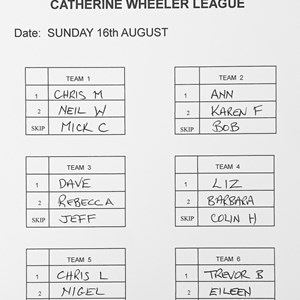 CATHERINE WHEELER LEAGUE
Date: SUNDAY 16th AUGUST
TEAM 1
1 CHRIS M
2 NEIL W
SKIP MICK C
TEAM 2
1 ANN
2 KAREN F
SKIP BOB
TEAM 3
1 DAVE
2 REBECCA
SKIP JEFF
TEAM 4
1 LIZ
2 BARBARA
SKIP COLIN H
TEAM 5
1 CHRIS L
2 NIGEL
TEAM 6
1 TREVOR B
2 EILEEN